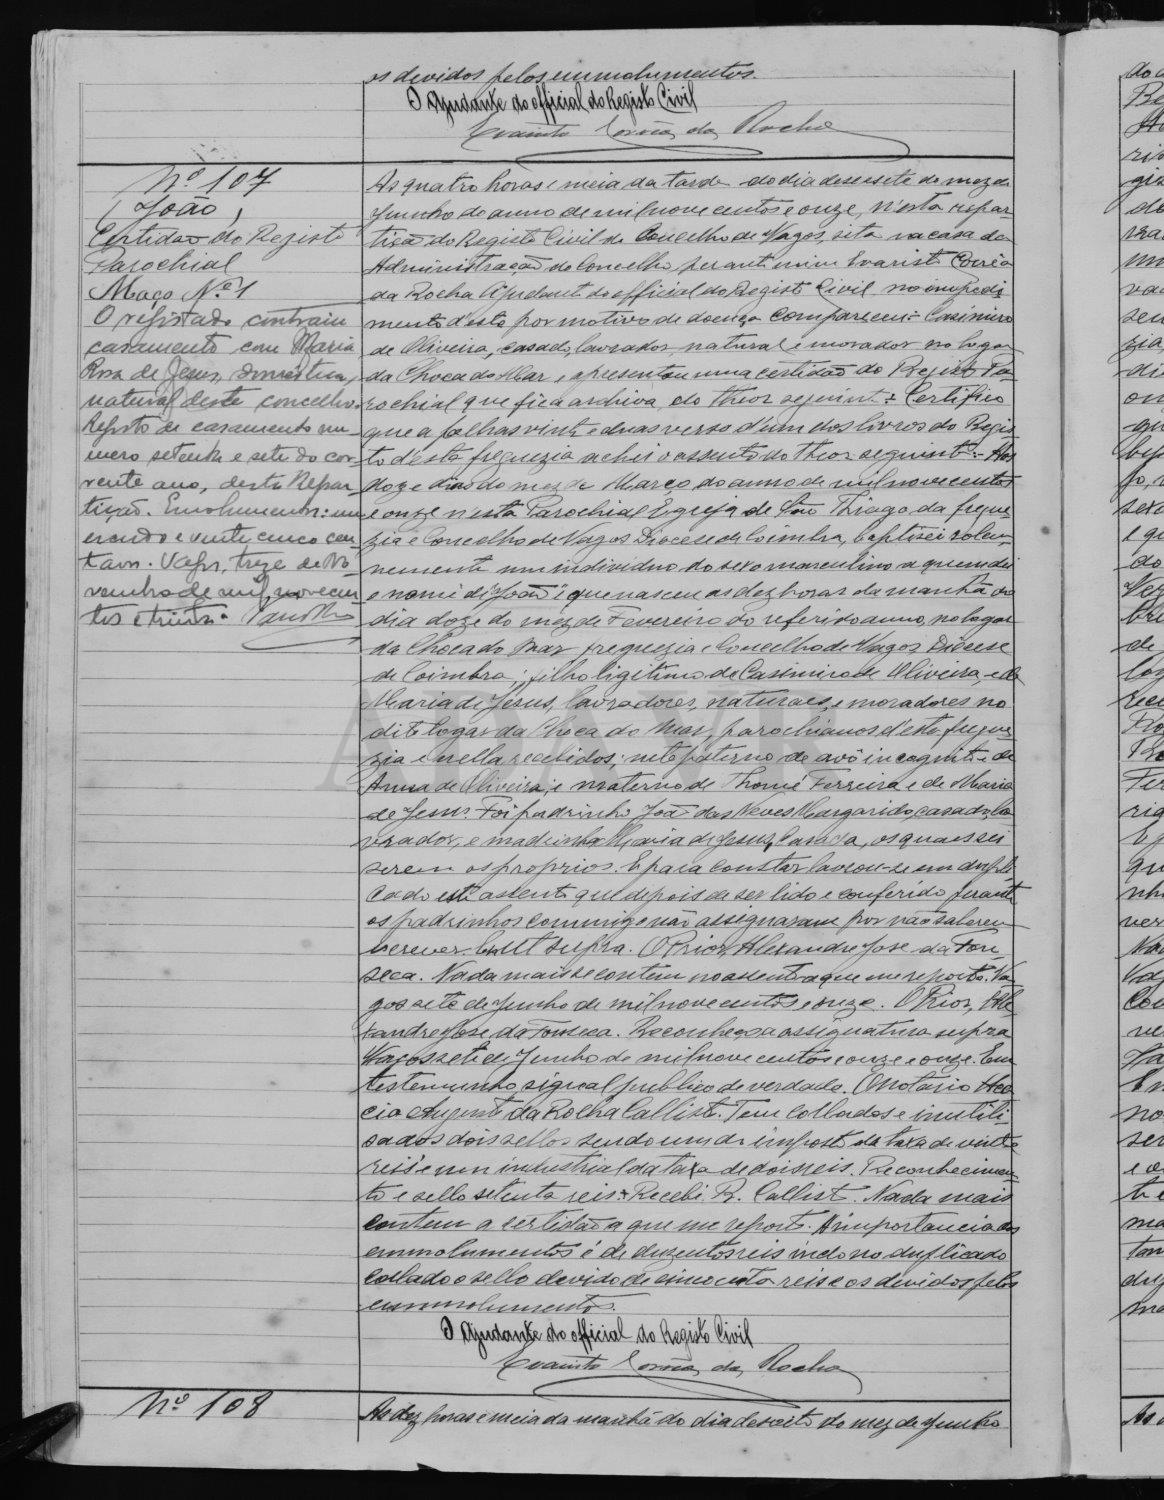 os devidos pelos emmolumentos.
O Ajudante do official do Registo Civil
Evaristo Corrêa da Rocha
Nº 107
João,
Certidão do Registo
Parochial
Maço Nº 1
O registado contraiu
casamento com Maria
Rosa de Jesus, domestica,
natural deste concelho.
Registo de casamento nu-
mero setenta e sete do cor-
rente ano, desta Repar-
tição. Emolumentos: um
escudo e vinte cinco cen-
tavos. Vagos, treze de No-
vembro de mil novecen-
tos e trinta.
As quatro horas e meia da tarde do dia desesete do mez de
Junho do anno de mil nove centos e onze, n'esta repar-
tição do Registo Civil do Concelho de Vagos, sita na casa da
Administração do Concelho, perante mim Evaristo Corrêa
da Rocha Ajudante do official do Registo Civil no impedi
mento d'este por motivo de doença compareceu:- Casimiro
de Oliveira, casado, lavrador, natural e morador no logar
da Choca do Mar, e apresentou uma certidão do Registo Pa-
rochial que fica archivada, do theor seguinte:- Certifico
que a folhas vinte e duas verso d'um dos livros do Regis-
to d'esta freguezia achei o assento do theor seguinte:- Aos
doze dias do mez de Março do anno de mil novecentos
e onze n'esta Parochial Egreja de São Thiago da fregue-
zia e Concelho de Vagos Diocese de Coimbra, baptisei solem-
nemente um individuo do sexo masculino a quem dei
o nome de "João" e que nasceu as dez horas da manhã do
dia doze do mez de Fevereiro do referido anno, no logar
da Choca do Mar freguezia e Concelho de Vagos Diocese
de Coimbra; filho ligitimo de Casimiro de Oliveira, e de
Maria de Jesus, lavradores, naturaes, e moradores no
dito logar da Choca do Mar, parochianos d'esta fregue-
zia e nella recebidos; neto paterno de avô incognito e de
Anna de Oliveira, e materno de Thomé Ferreira e de Maria
de Jesus. Foi padrinho João das Neves Margarido, casado, la-
vrador, e madrinha Maria de Jesus, casada, os quaes sei
serem os proprios. E para constar lavrou-se em dupli-
cado este assento que depois de ser lido e conferido perante
os padrinhos commigo não assignaram por não saberem
escrever. Era ut supra. O Prior, Alexandre Jose da Fon-
seca. Nada mais se contem no assento a que me reporto. Va-
gos sete de Junho de mil nove centos e onze. O Prior, Ale-
xandre Jose da Fonseca. Reconheço a assignatura supra
Vagos sete de Junho de mil nove centos e onze e onze. Em
testemunho signal publico de verdade. O notario
da Rocha Callisto. Tem collados e inutili-
sados dois sellos sendo um de imposto da taxa de vinte
reis e um industrial da taxa de dois reis. Reconhecimen-
to e sello setenta reis:- Recebi R. Callisto. Nada mais
contem a certidão a que me reporto. A importancia dos
emmolumentos é de duzentos reis indo no duplicado
collado o sello devido de cincoenta reis e os devidos pelos
emmolumentos.
O Ajudante do official do Registo Civil
Evaristo Corrêa da Rocha
Nº 108
As dez horas e meia da manhã do dia desoito do mez de Junho